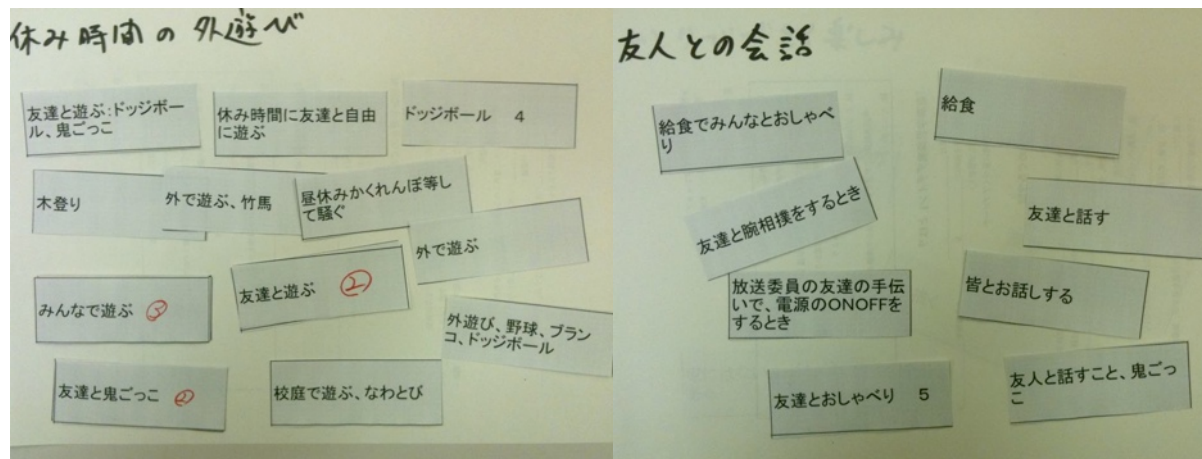 休み時間の外遊び
友達と遊ぶ:ドッジボー
ル、鬼ごっこ
休み時間に友達と自由
に遊ぶ
ドッジボール 4
木登り
外で遊ぶ、竹馬
昼休みかくれんぼ等し
て騒ぐ
外で遊ぶ
みんなで遊ぶ ③
友達と遊ぶ ②
外遊び、野球、ブラン
コ、ドッジボール
友達と鬼ごっこ ②
校庭で遊ぶ、なわとび
友人との会話
給食でみんなとおしゃべ
り
給食
友達と腕相撲をするとき
友達と話す
放送委員の友達の手伝
いで、電源のONOFFを
するとき
皆とお話しする
友達とおしゃべり 5
友人と話すこと、鬼ごっ
こ